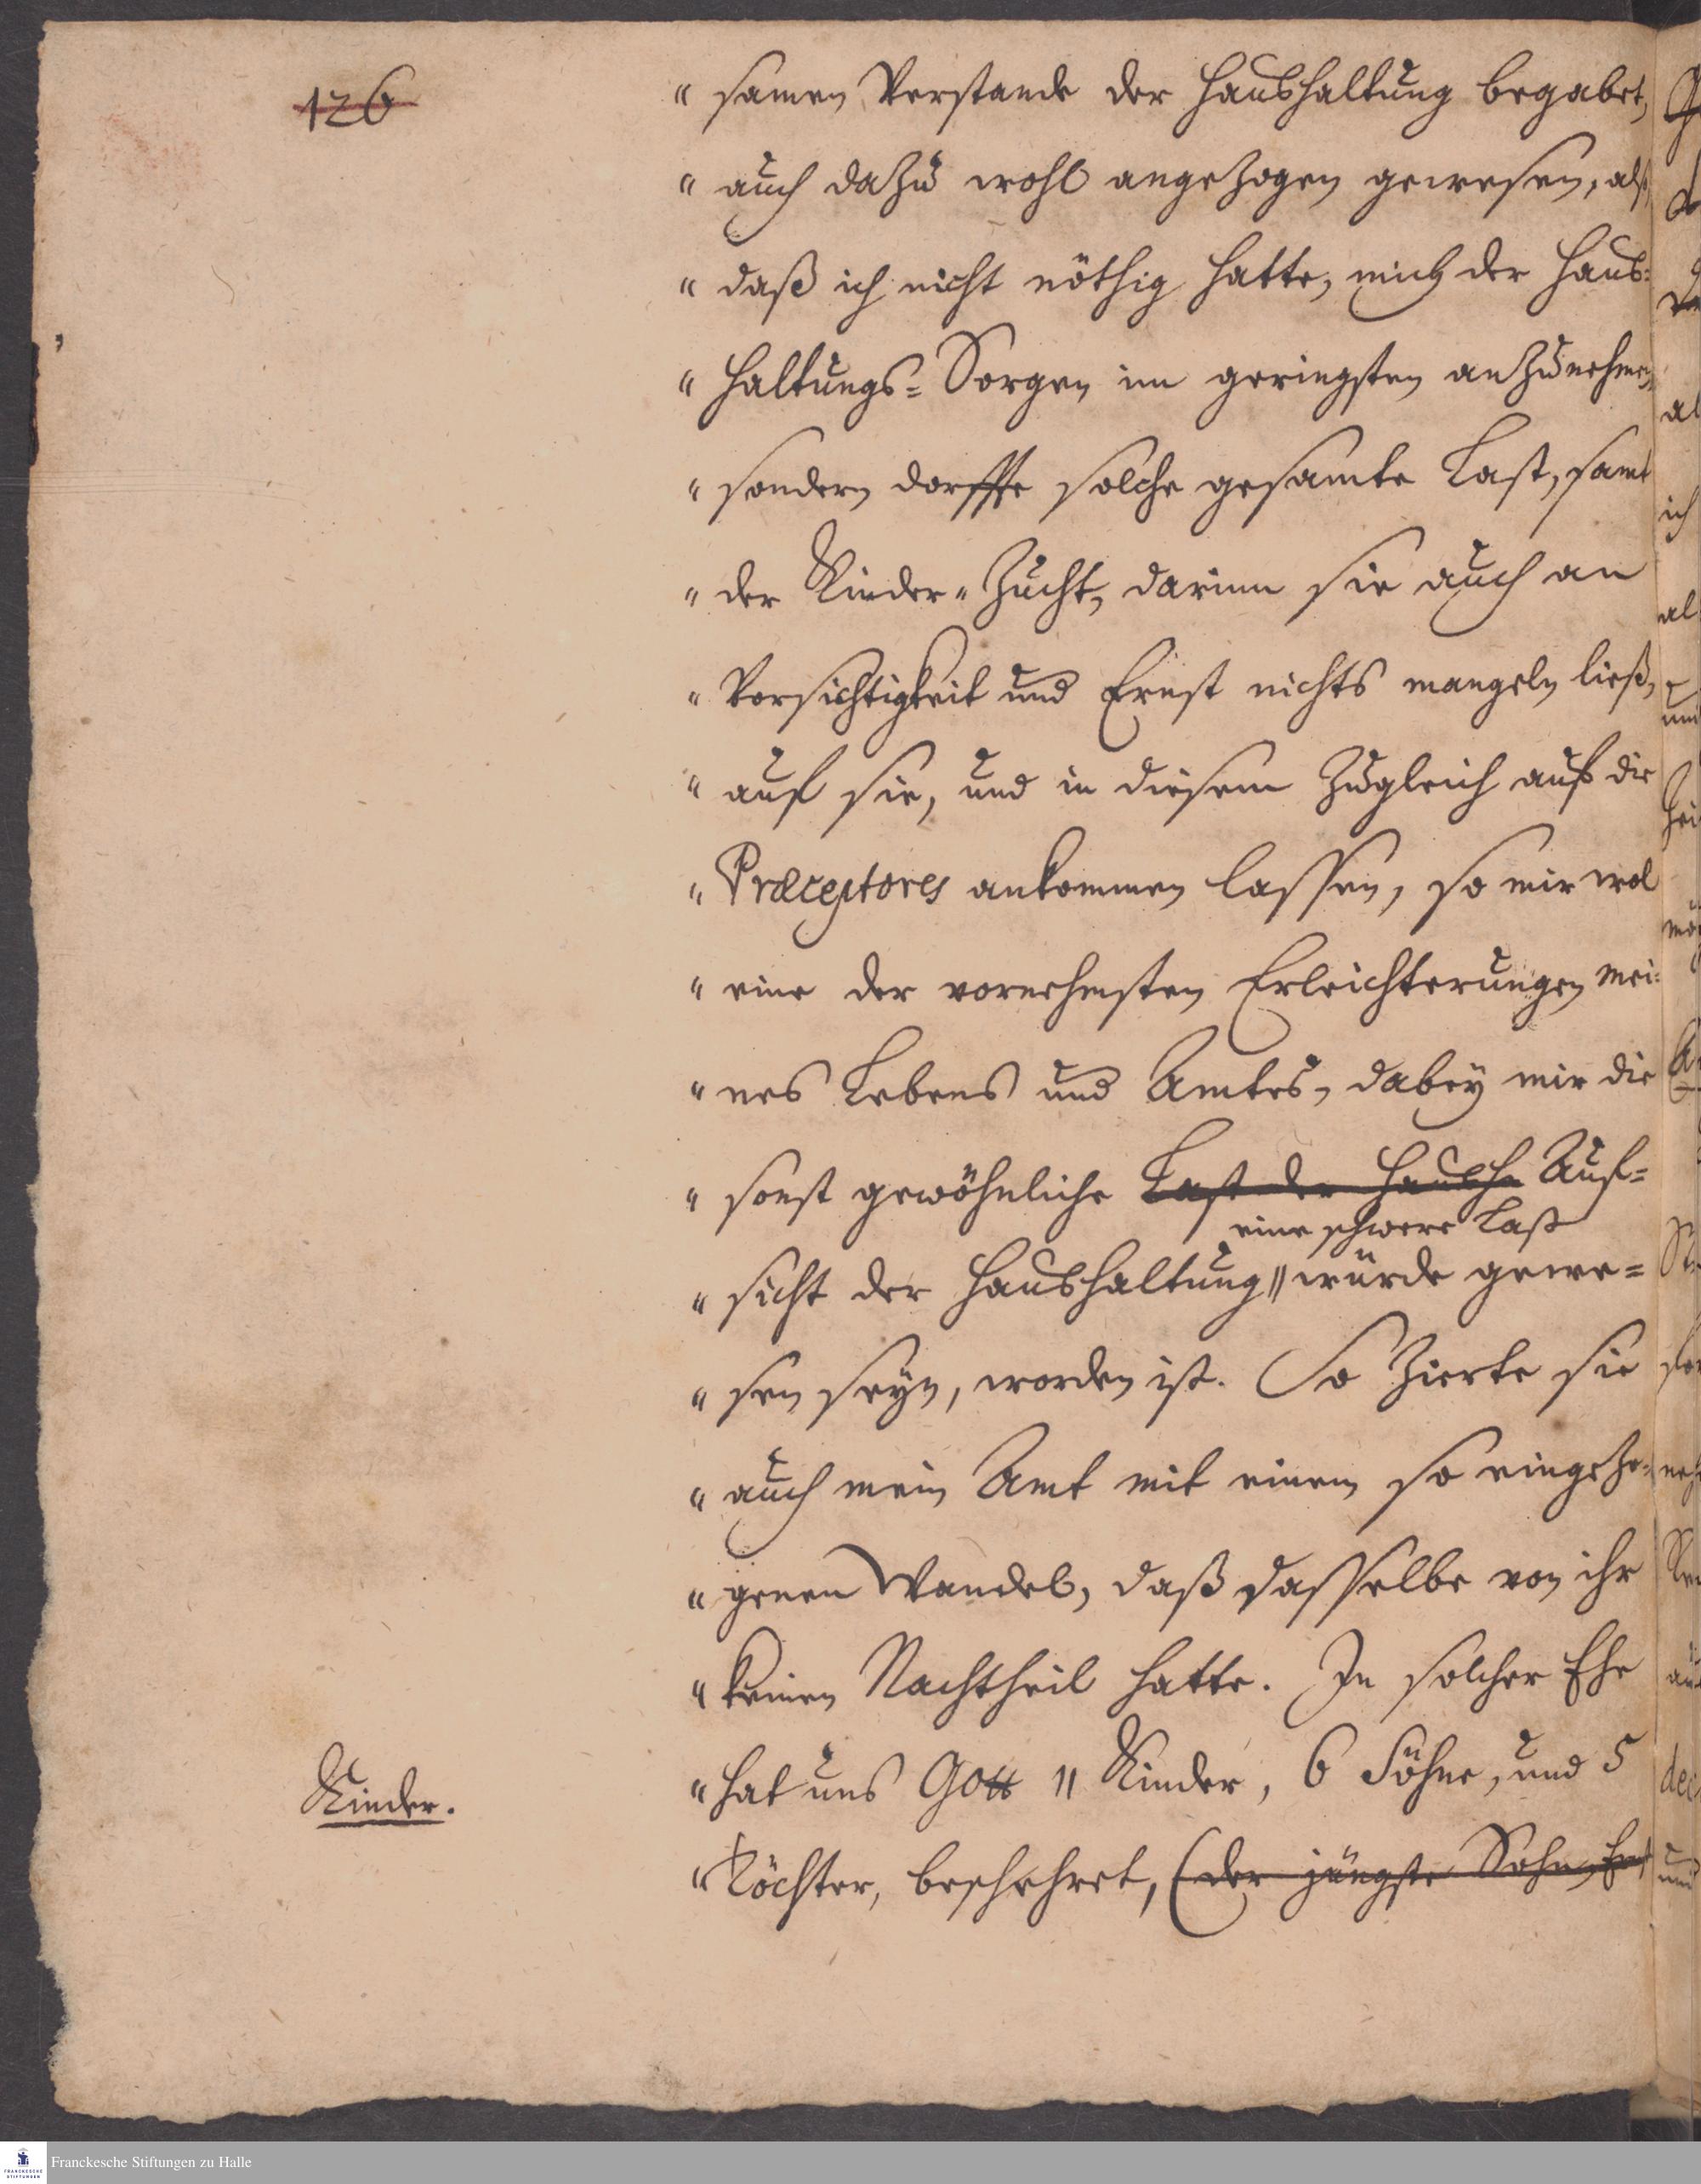 126
" samen Verstande der Haushaltung begabet,
" auch dazu wohl angezogen gewesen, als
" daß ich nicht nöthig hatte, mich der Haus=
" haltungs=Sorgen im geringsten anzunehmen,
" sondern dorffte solche gesamte Last, samt
" der Kinder=Zucht, darinn sie auch an
" Vorsichtigkeit und Ernst nichts mangeln ließ,
" auf sie, und in diesem zugleich auf die
" Præceptores ankommen lassen, so mir wol
" eine der vornehmsten Erleichterungen mei=
" nes Lebens und Amtes, dabey mir die
" sonst gewöhnliche Last der Haushe Auf=
eine schwere Last
" sicht der Haushaltung || würde gewe=
" sen seyn, worden ist. So zierte sie
" auch mein Amt mit einem so eingezo=
" genen Wandel, daß dasselbe von ihr
" keinen Nachtheil hatte. In solcher Ehe
Kinder.
" hat uns Gott 11 Kinder, 6 Söhne, und 5
" Töchter, beschehret, (der jüngste Sohn,
Franckesche Stiftungen zu Halle